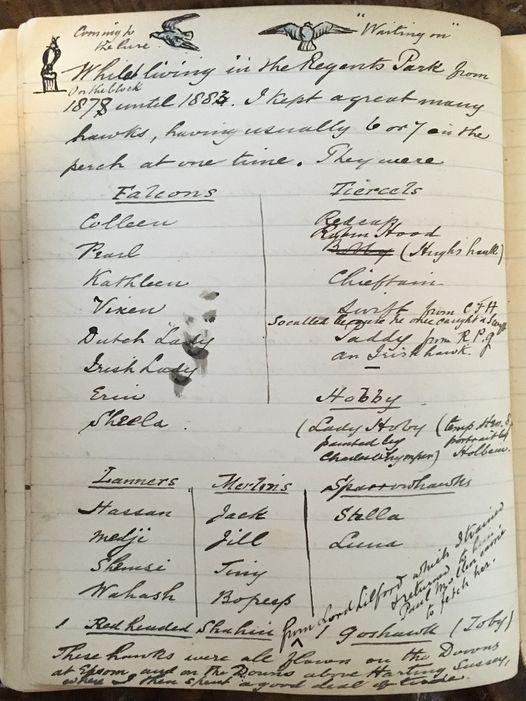 Coming to
the lure
"Waiting on"
On the block
Whilst living in the Regents Park from
1878 until 1883. I kept a great many
hawks, having usually 6 or 7 on the
perch at one time. They were
Falcons
Colleen
Pearl
Kathleen
Vixen
Dutch Lady
Irish Lady
Erin
Sheela.
Tiercels
Redcap
Robin Hood
(Hugh's hawk)
Chieftain
Swift from C F H
So called because he once caught a Swift
from R.P.
an Irish hawk.
Hobby
(Lady Hoby (temp Hen. 8
painted by portrait by
Charles Whymper) Holbein.
Lanners
Hassan
Medji
Shemsi
Wahash
Merlins
Jack
Jill
Tiny
Bopeep
Sparrowhawks
Stella
Luna
1 Red headed Shahin from Lord Lilford which I trained
& returned to him
Paul Mollen came
to fetch her.
1 Goshawk (Toby)
These hawks were all flown on the Downs
at Epsom, and on the Downs above Harting Sussex,
where I then spent a good deal of time.